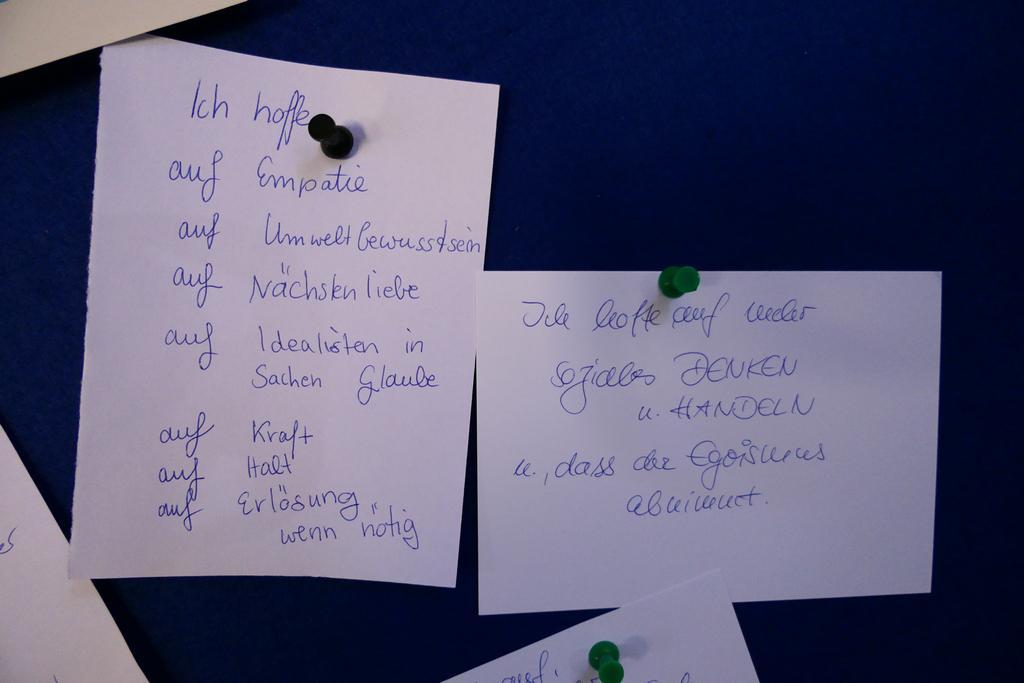 Ich hoffe
auf Empatie
auf Umweltbewusstsein
auf Nächstenliebe
auf Idealisten in
Sachen Glaube
auf Kraft
auf Halt
auf Erlösung
wenn nötig
Ich hoffe auf mehr
soziales DENKEN
u. HANDELN
u., dass der Egoismus
abnimmt.
auf.